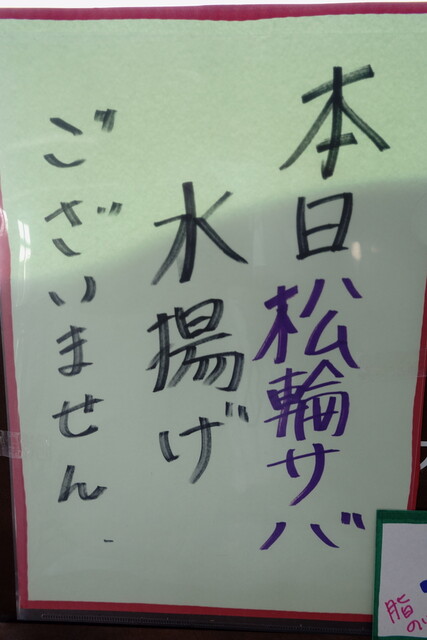 本日松輪サバ
水揚げ
ございません
脂
の